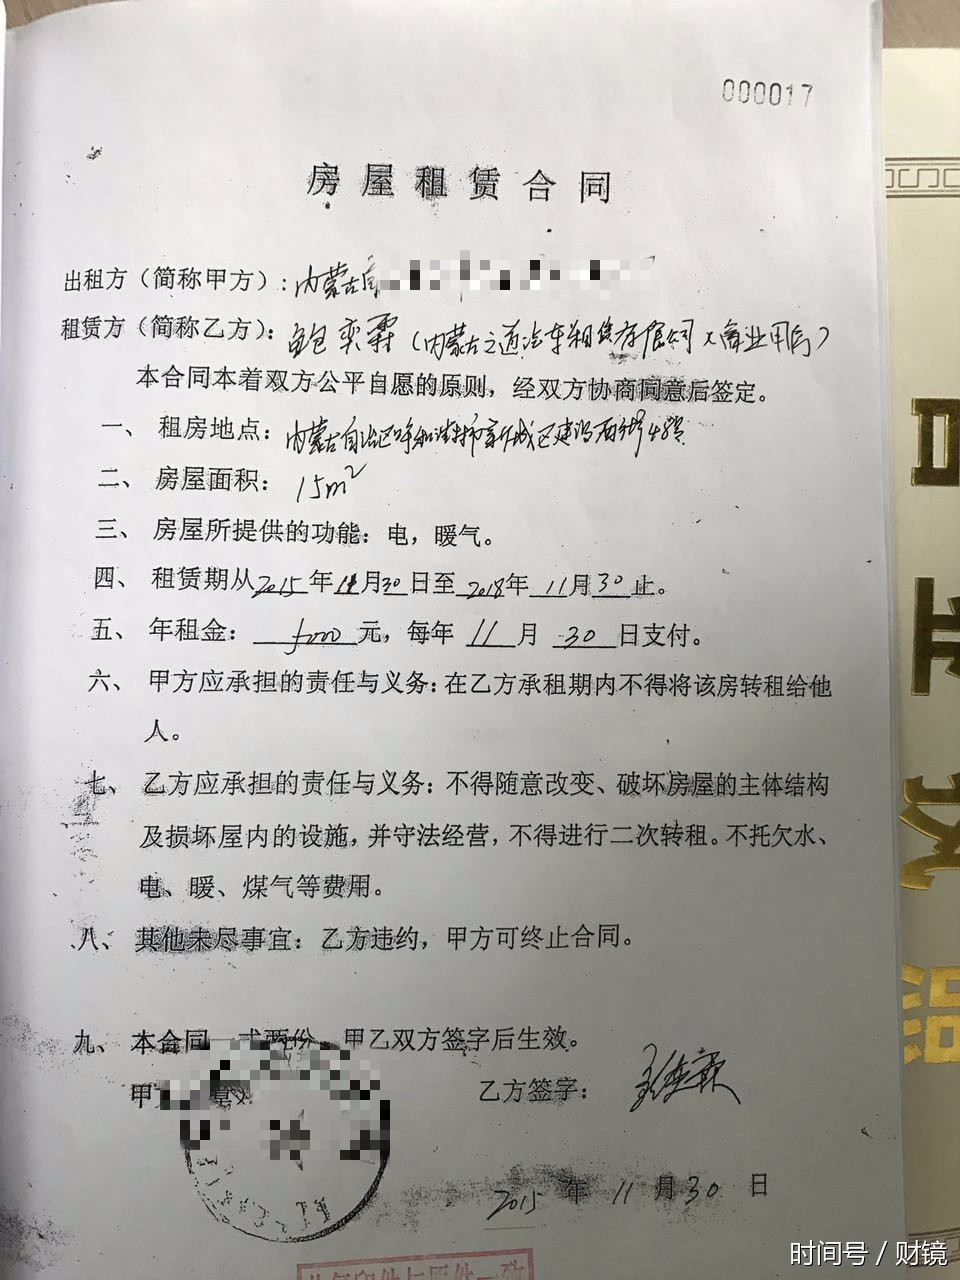 000017
房屋租赁合同
出租方（简称甲方）：内蒙古自
租赁方（简称乙方）：鲍奕霖（内蒙古之道汽车租赁有限公司 商业用房）
本合同本着双方公平自愿的原则，经双方协商同意后签定。
一、租房地点：内蒙古自治区呼和浩特市新城区建设西街4号
二、房屋面积：15m²
三、房屋所提供的功能：电，暖气。
四、租赁期从2015年11月30日至2018年11月30止。
五、年租金：元，每年11月30日支付。
六、甲方应承担的责任与义务：在乙方承租期内不得将该房转租给他
人。
七、乙方应承担的责任与义务：不得随意改变、破坏房屋的主体结构
及损坏屋内的设施，并守法经营，不得进行二次转租。不托欠水、
电、暖、煤气等费用。
八、其他未尽事宜：乙方违约，甲方可终止合同。
九、本合同一式两份，甲乙双方签字后生效。
甲 章） 乙方签字：
2015年11月30日
此复印件与原件一致
时间号 / 财镜